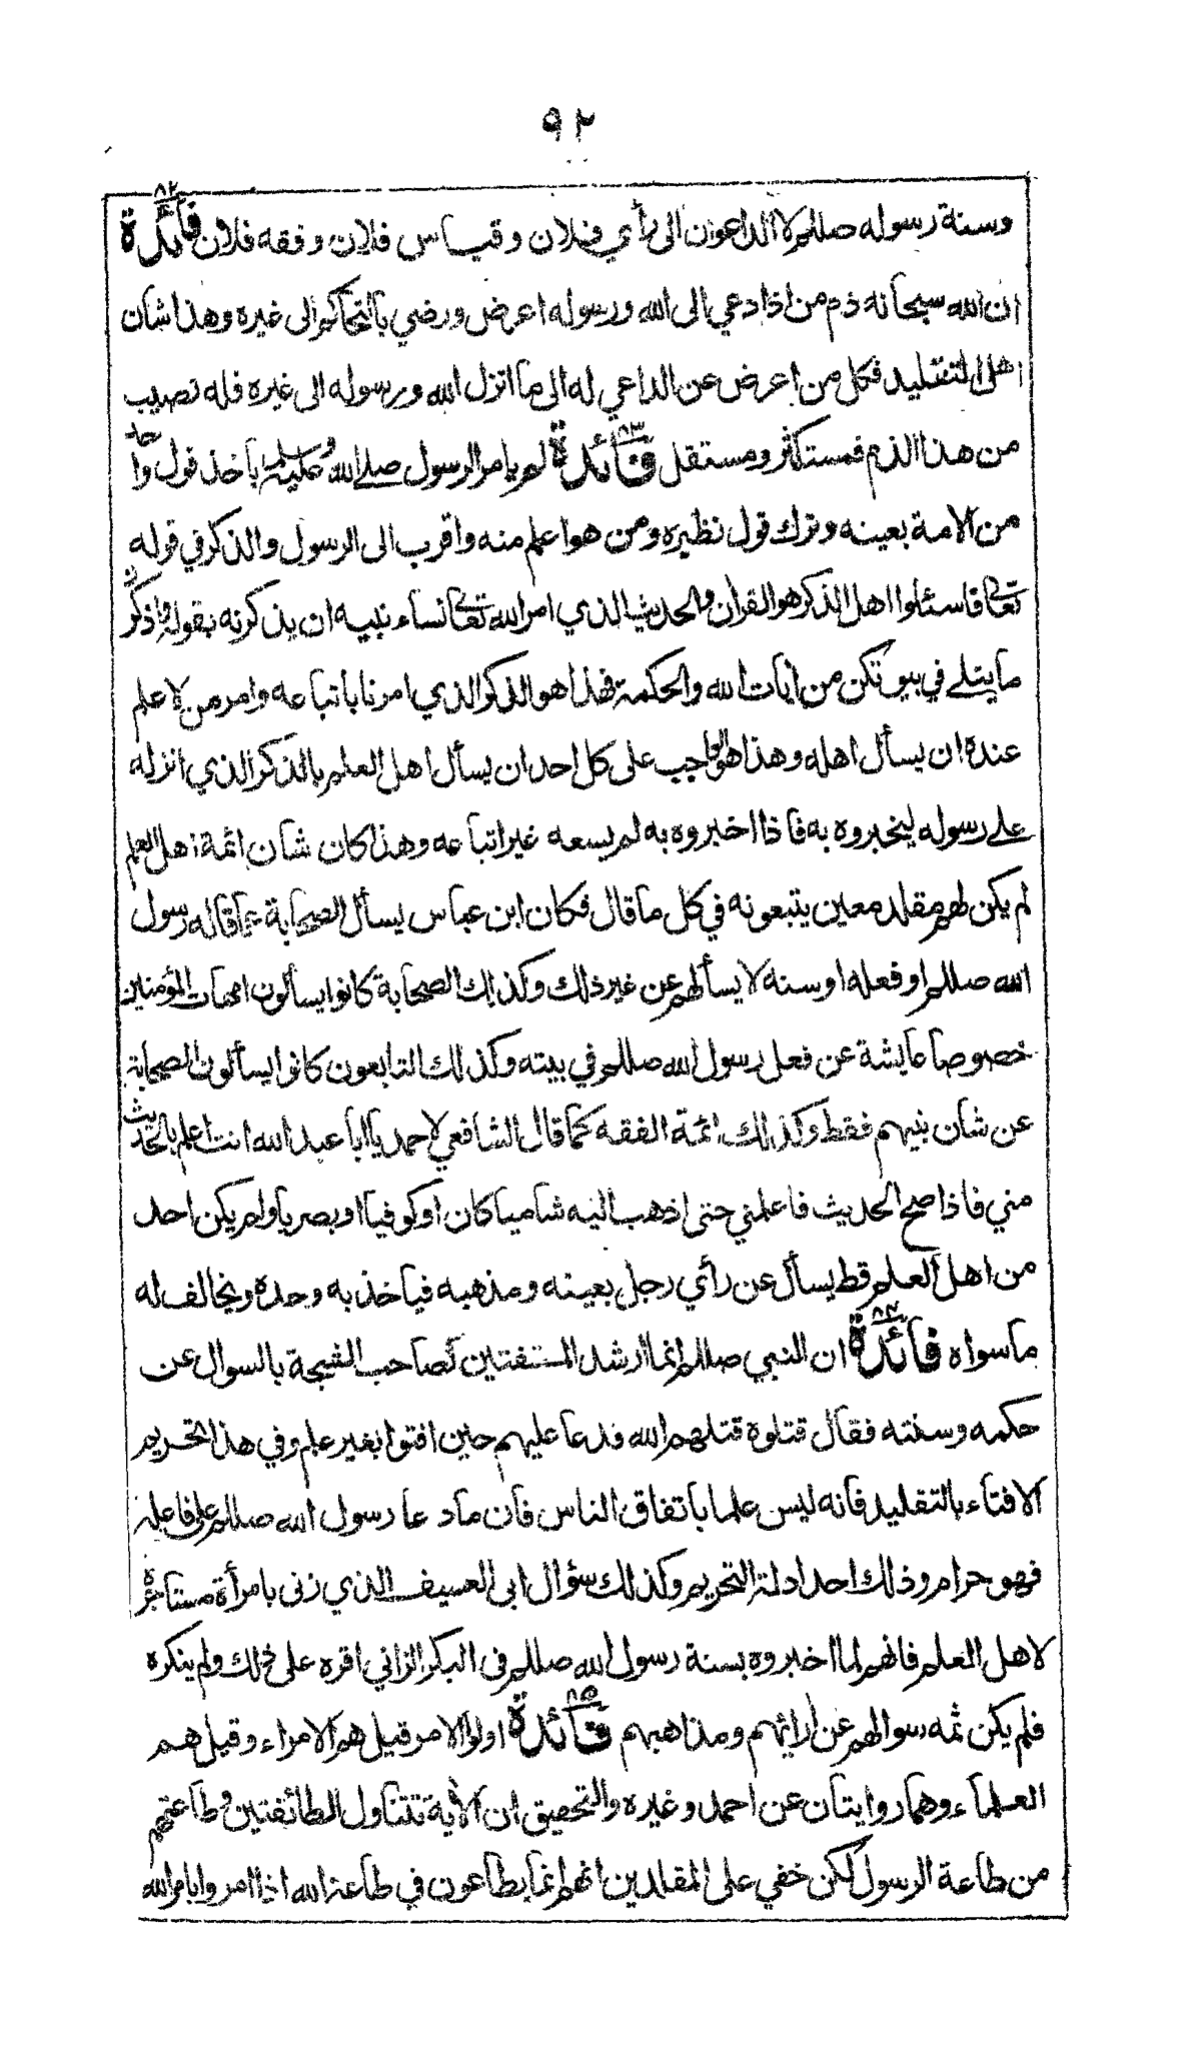 ٩٢
وسنة رسوله صللم لا الداعون الى رأي فلان وقياس فلان وفقه فلان فائدة ٨٢
ان الله سبحانه ذم من اذا دعي الى الله ورسوله اعرض ورضي بالتحاكم الى غيره وهذا شان
اهل التقليد فكل من اعرض عن الداعي له الى ما انزل الله ورسوله الى غيره فله نصيب
من هذا الذم فمستكثر ومستقل فائدة ٨٣ لم يامر الرسول صلى الله عليه وسلم باخذ قول واحد
من الامة بعينه وترك قول نظيره ومن هو اعلم منه واقرب الى الرسول والذكر في قوله
تعالى فاسئلوا اهل الذكر هو القران والحديث الذي امر الله تعالى نساء نبيه ان يذكرنه بقوله واذكرن
ما يتلى في بيوتكن من ايات الله والحكمة فهذا هو الذكر الذي امرنا باتباعه وامر من لا علم
عنده ان يسأل اهله وهذا هو الواجب على كل احد ان يسأل اهل العلم بالذكر الذي انزله
على رسوله ليخبروه به فاذا اخبروه به لم يسعه غير اتباعه وهذا كان شان ائمة اهل العلم
لم يكن لهم مقلد معين يتبعونه في كل ما قال فكان ابن عباس يسأل الصحابة عما قاله رسول
الله صللم او فعله او سنه لا يسألهم عن غير ذلك وكذلك الصحابة كانوا يسألون امهات المؤمنين
خصوصا عايشة عن فعل رسول الله صللم في بيته وكذلك التابعون كانوا يسألون الصحابة
عن شان نبيهم فقط وكذلك ائمة الفقه كما قال الشافعي لاحمد يا ابا عبد الله انت اعلم بالحديث
مني فاذا صح الحديث فاعلمني حتى اذهب اليه شاميا كان او كوفيا او بصريا ولم يكن احد
من اهل العلم قط يسأل عن رأي رجل بعينه ومذهبه فياخذ به وحده ويخالف له
ما سواه فائدة ٨٤ ان النبي صللم انما ارشد المستفتين لصاحب الشجة بالسوال عن
حكمه وسنته فقال قتلوه قتلهم الله فدعا عليهم حين افتوا بغير علم وفي هذا تحريم
الافتاء بالتقليد فانه ليس علما باتفاق الناس فان ما دعا رسول الله صللم على فاعله
فهو حرام وذلك احد ادلة التحريم وكذلك سؤال ابى العسيف الذي زنى بامرأة مستاجره
لاهل العلم فانهم لما اخبروه بسنة رسول الله صللم في البكر الزاني اقره على ذلك ولم ينكره
فلم يكن ثمه سوالهم عن ارائهم ومذاهبهم فائدة ٨٥ اولوا الامر قيل هم الامراء وقيل هم
العلماء وهما روايتان عن احمد وغيره والتحقيق ان الاية تتناول الطائفتين وطاعتهم
من طاعة الرسول لكن خفي على المقلدين انهم انما يطاعون في طاعة الله اذا امروا بامر الله